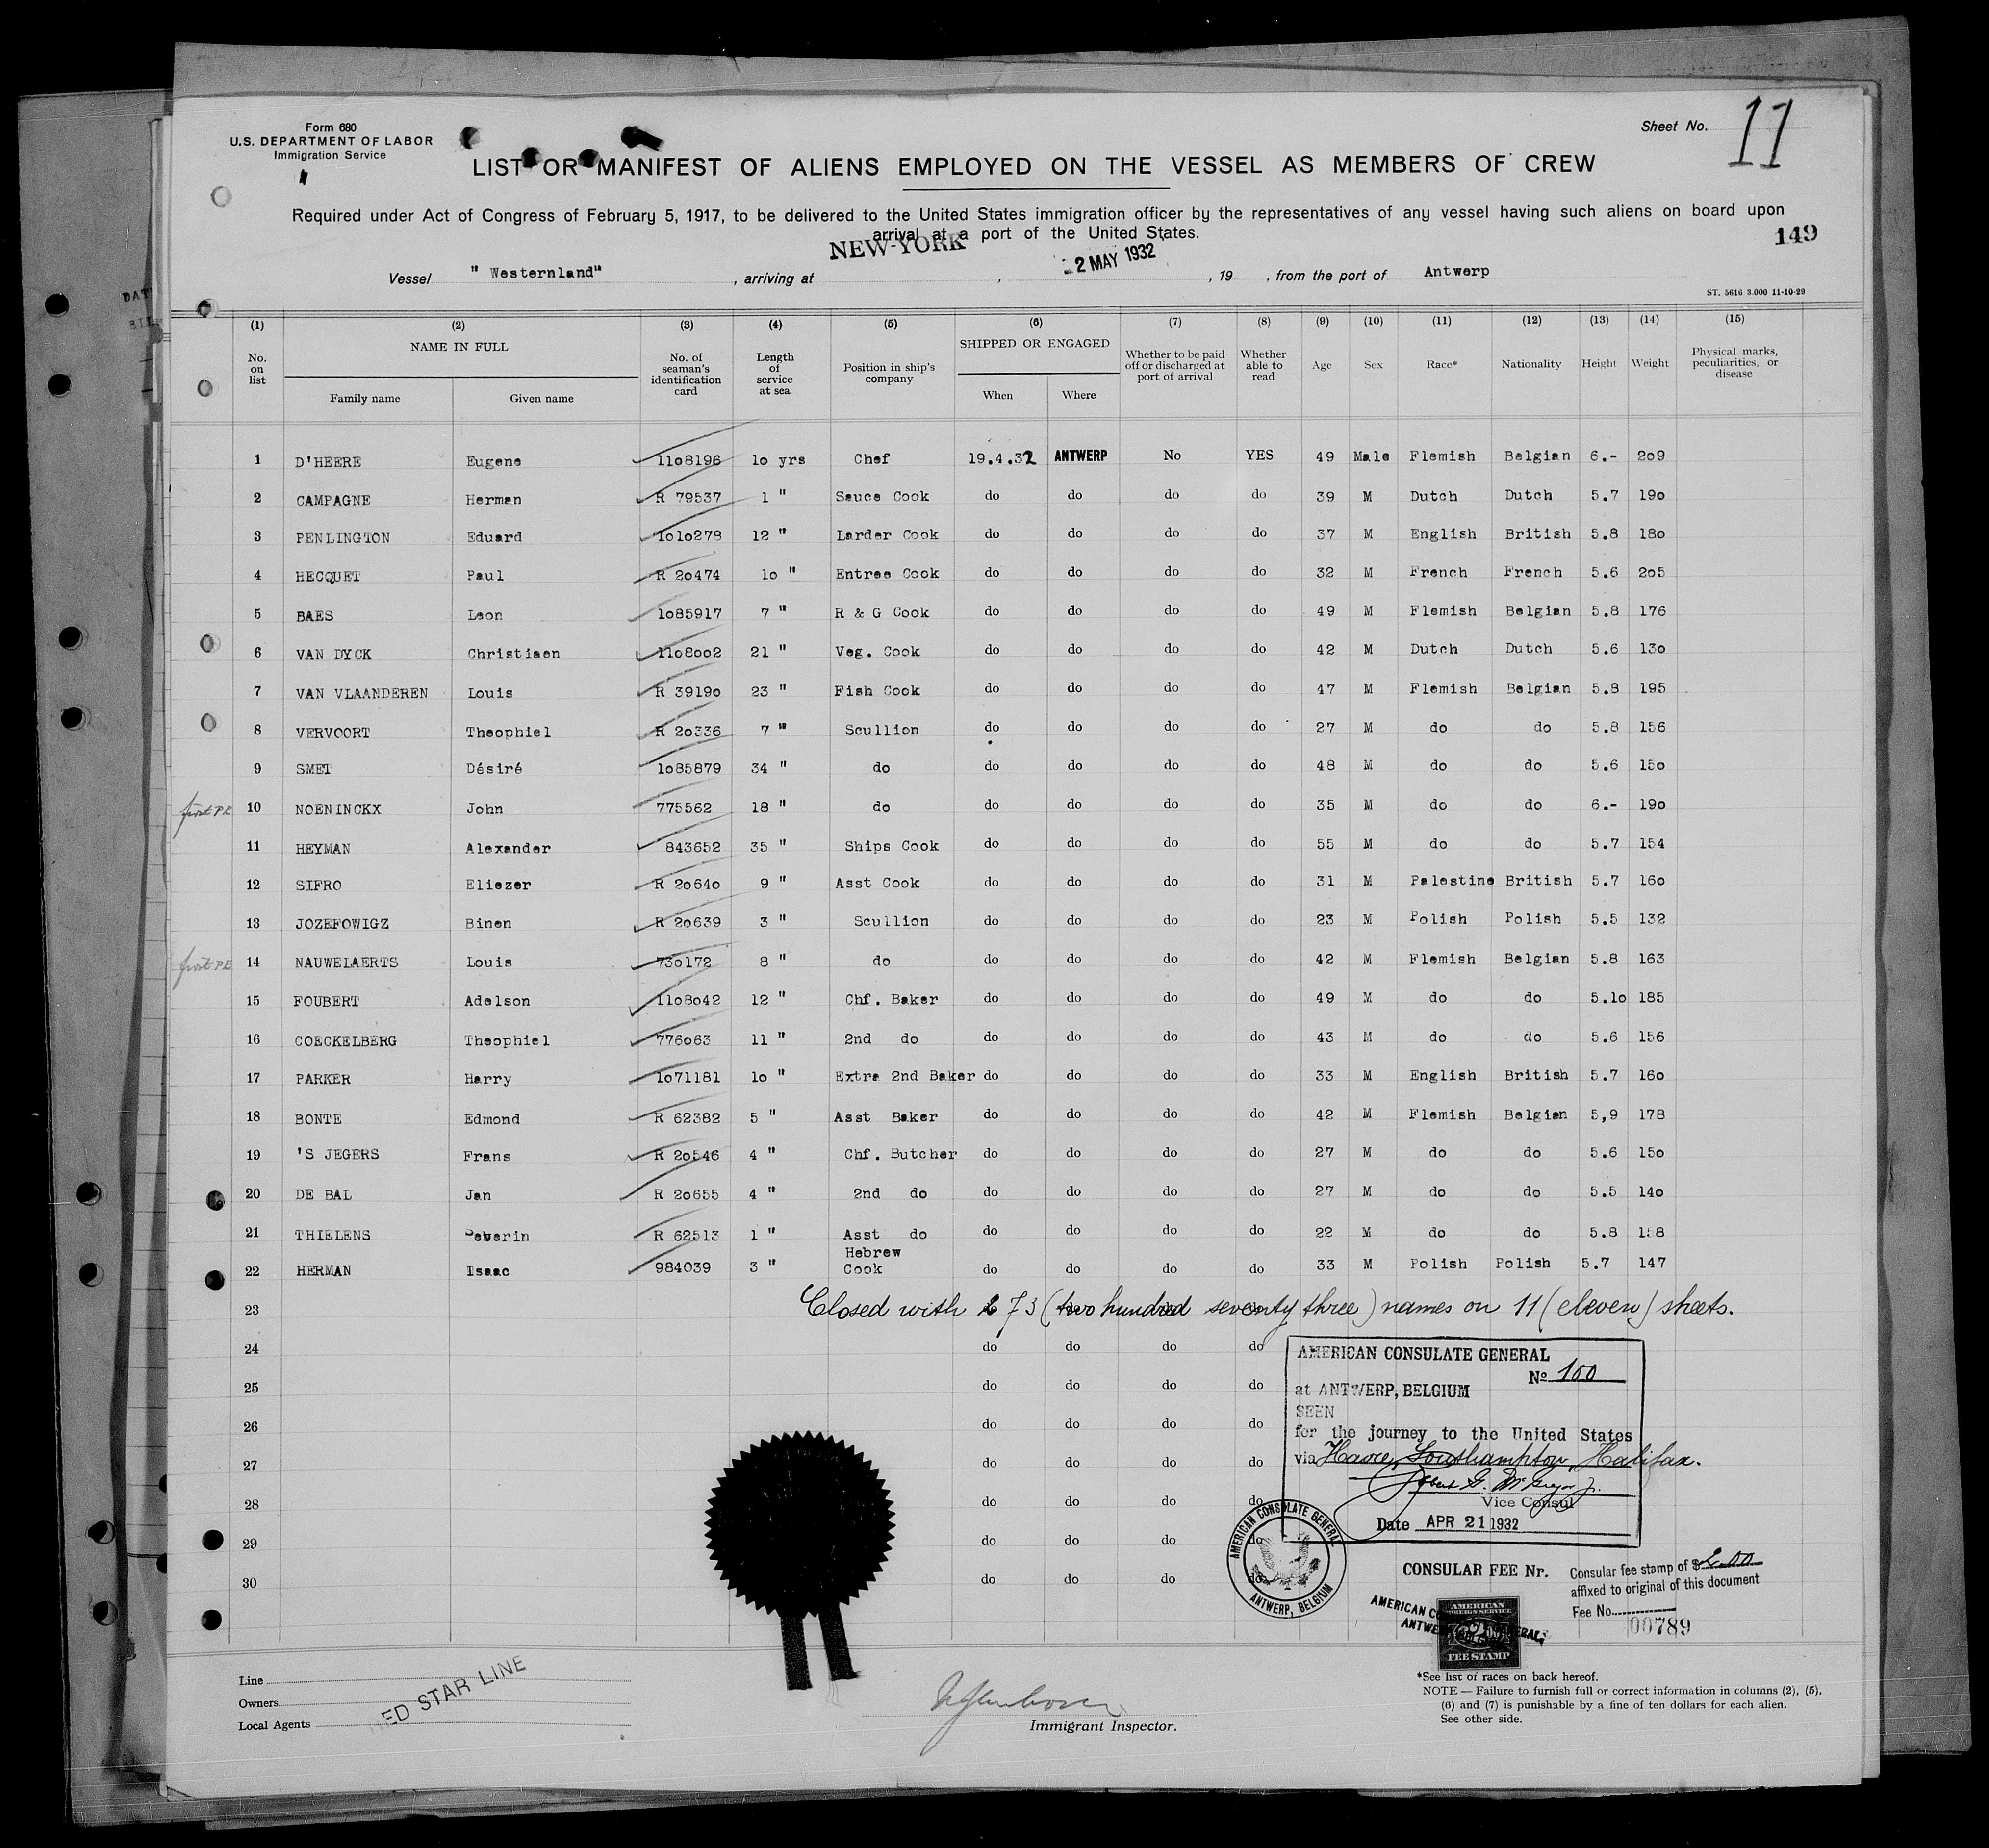 Form 680
U.S. DEPARTMENT OF LABOR
Immigration Service
Sheet No. 11
LIST OR MANIFEST OF ALIENS EMPLOYED ON THE VESSEL AS MEMBERS OF CREW
Required under Act of Congress of February 5, 1917, to be delivered to the United States immigration officer by the representatives of any vessel having such aliens on board upon
arrival at a port of the United States.
149
Vessel " Westernland" , arriving at NEW-YORK , 2 MAY 1932 , 19 , from the port of Antwerp
ST. 5616 3.000 11-10-29
(1) (2) (3) (4) (5) (6) (7) (8) (9) (10) (11) (12) (13) (14) (15)
No. on list NAME IN FULL Family name Given name No. of seaman's identification card Length of service at sea Position in ship's company SHIPPED OR ENGAGED When Where Whether to be paid off or discharged at port of arrival Whether able to read Age Sex Race* Nationality Height Weight Physical marks, peculiarities, or disease
1 D'HEERE Eugene 11o8196 1o yrs Chef 19.4.32 ANTWERP No YES 49 Male Flemish Belgian 6.- 2o9
2 CAMPAGNE Herman R 79537 1 " Sauce Cook do do do do 39 M Dutch Dutch 5.7 19o
3 PENLINGTON Eduard 1o1o278 12 " Larder Cook do do do do 37 M English British 5.8 18o
4 HECQUET Paul R 2o474 1o " Entree Cook do do do do 32 M French French 5.6 2o5
5 BAES Leon 1o85917 7 " R & G Cook do do do do 49 M Flemish Belgian 5.8 176
6 VAN DYCK Christiaen 11o8oo2 21 " Veg. Cook do do do do 42 M Dutch Dutch 5.6 13o
7 VAN VLAANDEREN Louis R 3919o 23 " Fish Cook do do do do 47 M Flemish Belgian 5.8 195
8 VERVOORT Theophiel R 2o336 7 " Scullion do do do do 27 M do do 5.8 156
9 SMET Désiré 1o85879 34 " do do do do do 48 M do do 5.6 15o
10 NOENINCKX John 775562 18 " do do do do do 35 M do do 6.- 19o
11 HEYMAN Alexander 843652 35 " Ships Cook do do do do 55 M do do 5.7 154
12 SIFRO Eliezer R 2o64o 9 " Asst Cook do do do do 31 M Palestine British 5.7 16o
13 JOZEFOWIGZ Binen R 2o639 3 " Scullion do do do do 23 M Polish Polish 5.5 132
14 NAUWELAERTS Louis 73o172 8 " do do do do do 42 M Flemish Belgian 5.8 163
15 FOUBERT Adelson 11o8o42 12 " Chf. Baker do do do do 49 M do do 5.1o 185
16 COECKELBERG Theophiel 776o63 11 " 2nd do do do do do 43 M do do 5.6 156
17 PARKER Harry 1o71181 1o " Extra 2nd Baker do do do do 33 M English British 5.7 16o
18 BONTE Edmond R 62382 5 " Asst Baker do do do do 42 M Flemish Belgian 5,9 178
19 'S JEGERS Frans R 2o546 4 " Chf. Butcher do do do do 27 M do do 5.6 15o
20 DE BAL Jan R 2o655 4 " 2nd do do do do do 27 M do do 5.5 14o
21 THIELENS R 62513 1 " Asst do do do do do 22 M do do 5.8 158
22 HERMAN Isaac 984039 3 " Hebrew Cook do do do do 33 M Polish Polish 5.7 147
23 Closed with 273 (two hundred seventy three) names on 11 (eleven) sheets.
24 do do do do
25 do do do do
26 do do do do
27 do do do do
28 do do do do
29 do do do do
30 do do do do
AMERICAN CONSULATE GENERAL
No 100
at ANTWERP, BELGIUM
SEEN
for the journey to the United States
via Havre, Southampton, Halifax.
Robert G. McGregor Jr.
Vice Consul
Date APR 21 1932
AMERICAN CONSULATE GENERAL
ANTWERP, BELGIUM
CONSULAR FEE Nr.
Consular fee stamp of $2.00
affixed to original of this document
Fee No.
00789
AMERICAN FOREIGN SERVICE
FEE STAMP
Line
Owners
Local Agents
RED STAR LINE
Immigrant Inspector.
*See list of races on back hereof.
NOTE — Failure to furnish full or correct information in columns (2), (5),
(6) and (7) is punishable by a fine of ten dollars for each alien.
See other side.